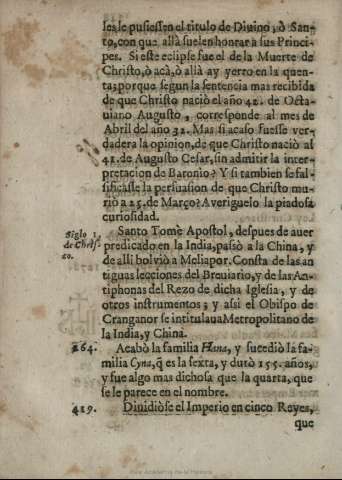 les le pusiessen el titulo de Diuino, ò San-
to, con que allà suelen honrar a sus Princi-
pes. Si este eclipse fue el de la Muerte de
Christo, ò acà, ò allà ay yerro en la quen-
ta; porque segun la sentencia mas recibida
de que Christo naciò el año 42. de Octa-
uiano Augusto, corresponde al mes de
Abril del año 32. Mas si acaso fuesse ver-
dadera la opinion, de que Christo naciò al
41. de Augusto Cesar, sin admitir la inter-
pretacion de Baronio? Y si tambien se fal-
sificasse la persuasion de que Christo mu-
riò a 25. de Março? Aueriguelo la piadosa
curiosidad.
Siglo 1.
de Chris-
to.
Santo Tomè Apostol, despues de auer
predicado en la India, passò a la China, y
de alli bolviò a Meliapor. Consta de las an
tiguas lecciones del Breuiario, y de las An-
tiphonas del Rezo de dicha Iglesia, y de
otros instrumentos; y assi el Obispo de
Cranganor se intitulaua Metropolitano de
la India, y China.
264. Acabò la familia Hana, y sucediò la fa-
milia Cyna, q̃ es la sexta, y durò 155. años,
y fue algo mas dichosa que la quarta, que
se le parece en el nombre.
419. Diuidiòse el Imperio en cinco Reyes,
que